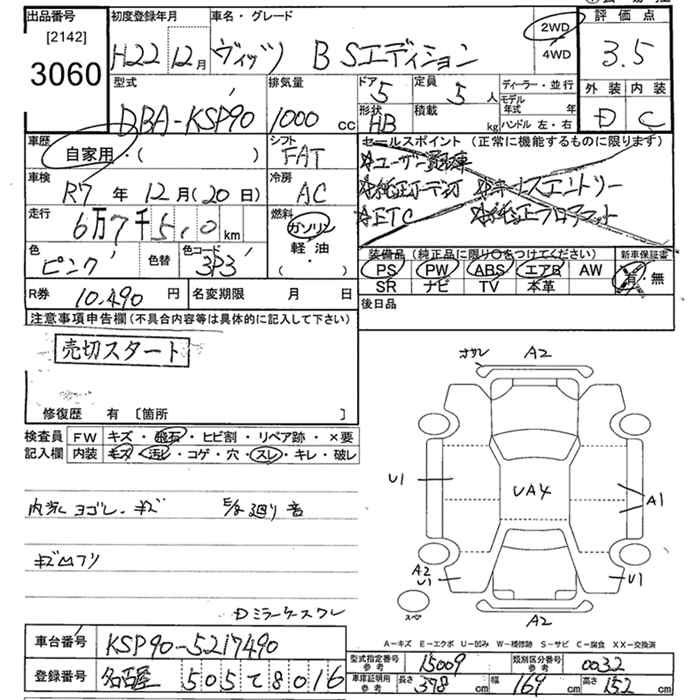 出品番号
[2142]
3060
初度登録年月
H22 12月
車名・グレード
ヴィッツ B Sエディション
2WD
4WD
評価点
3.5
外装 内装
D C
型式
DBA-KSP90
排気量
1000 cc
ドア 5
定員 5 人
形状 HB
積載 kg
ディーラー・並行
モデル年式 年
ハンドル 左・右
車歴
自家用・( )
シフト
FAT
車検
R7 年 12月(20日)
冷房
AC
走行
6万7千5,0 km
燃料
ガソリン
軽・油
( ・ )
色
ピンク
色替
色コード
3P3
セールスポイント (正常に機能するものに限ります)
☆ユーザー買取車
☆純正オーディオ ☆キーレスエントリー
☆ETC ☆純正フロアマット
装備品(純正品に限り○をつけてください)
新車保証書
PS PW ABS エアB AW
SR ナビ TV 本革
有・無
R券 10,490 円
名変期限 月 日
後日品
注意事項申告欄(不具合内容等は具体的に記入して下さい)
売切スタート
修復歴 有 [箇所 ]
検査員記入欄
FW キズ・飛石・ヒビ割・リペア跡・×要
内装 キズ・汚レ・コゲ・穴・スレ・キレ・破レ
内装ヨゴレ・キズ
E/g廻り音
キズ凹アリ
Dミラーケースワレ
オサレ A2
U1
UA4
A1
A2
U1
U1
スペア
A2
A−キズ E−エクボ U−凹み W−補修跡 S−サビ C−腐食 XX−交換済
車台番号 KSP90-5217490
登録番号 名古屋 505 て 8016
型式指定番号 参考 15009
類別区分番号 参考 0032
車庫証明用 参考
長さ 378 cm
幅 169 cm
高さ 152 cm